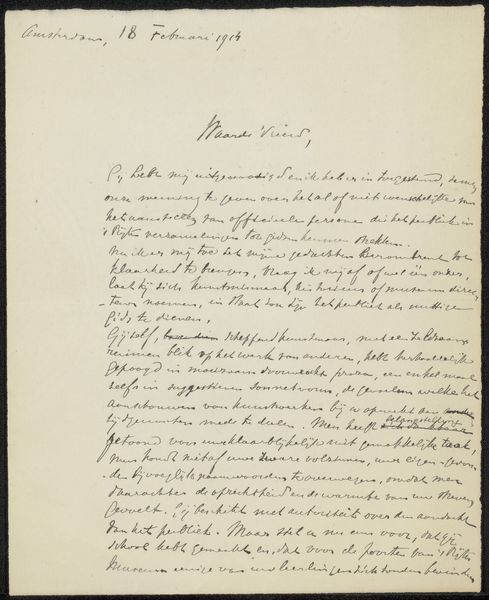 Amsterdam, 18 Februari 1914
Waarde Vriend,
Gij hebt mij uitgenoodigd en ik heb er in toegestemd,
onze meening te geven over het al of niet wenschelijke van
het aanstellen van officieele personen die het publiek in
's Rijks verzamelingen tot gidsen kunnen strekken.
Nu ik er mij toe zet mijne gedachten daaromtrent tot
klaarheid te brengen, vraag ik mij af of wel een onzer,
laat hij zich kunstenaar, historicus of museum direc-
teur noemen, in staat zou zijn het publiek als nuttige
gids te dienen.
Gij zelf, scheppend kunstenaar, met een zeldzaam
ruimen blik op het werk van anderen, hebt herhaaldelijk
gepoogd in moeizaam doorwerkt proza, een enkel maal
zelfs in suggestieven sonnetvorm, de gevoelens welke het
aanschouwen van kunstwerken bij u opwekt aan
tijdgenooten mede te deelen. Men heeft belangstelling
getoond voor uw klaarblijkelijk niet gemakkelijke taak,
men houdt niet af uwe zware volzinnen, uwe eigen-gevon-
den bijvoeglijke naamwoorden te overwegen, omdat men
daarachter de oprechtheid en de warmte van uw streven
gevoelt. Gij beschikt met autoriteit over den aandacht
van het publiek. Maar stel u nu eens voor, dat gij
school hebt gemaakt en, dat voor de poorten van 's Rijks
Museum eenige van uw leerlingen zich zouden bevinden